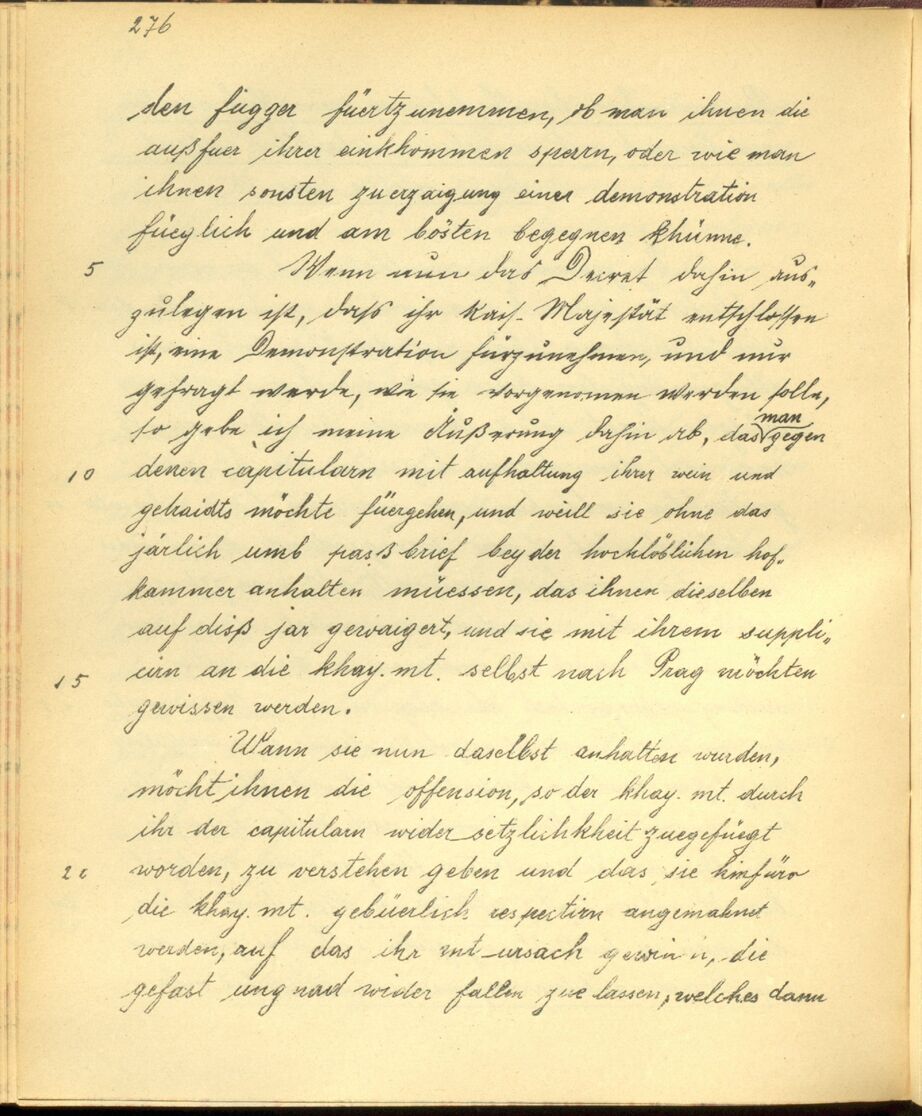 276
den fugger füertzunemmen, ob man ihnen die
außfuer ihrer einkhommen sperrn, oder wie man
ihnen sonsten zuerzaigung einer demonstration
füeglich und am bösten begegnen khünne.
5 Wenn nun das Decret dahin aus„
zulegen ist, daß ihr Kais. Majestät entschlossen
ist, eine Demonstration fürzunehmen, und nur
gefragt werde, wie sie vorgenomen werden solle,
so gebe ich meine Äußerung dahin ab, das man gegen
10 denen capitularn mit aufhaltung ihrer wein und
getraidts möchte füergehen, und weill sie ohne das
järlich umb paßbrief bey der hochlöblichen hof„
kammer anhalten müessen, das ihnen dieselben
auf diß jar gewaigert, und sie mit ihrem suppli„
15 cirn an die khay. mt. selbst nach Prag möchten
gewissen werden.
Wann sie nun daselbst anhalten wurden,
möcht ihnen die offension, so der khay. mt. durch
ihr der capitularn widersetzlichkheit zuegefüegt
20 worden, zu verstehen geben und das sie hinfüro
die khay. mt. gebüerlich respectirn angemahnet
werden, auf das ihr mt ursach gewin̄n, die
gefast ungnad wider fallen zue lassen, welches dann